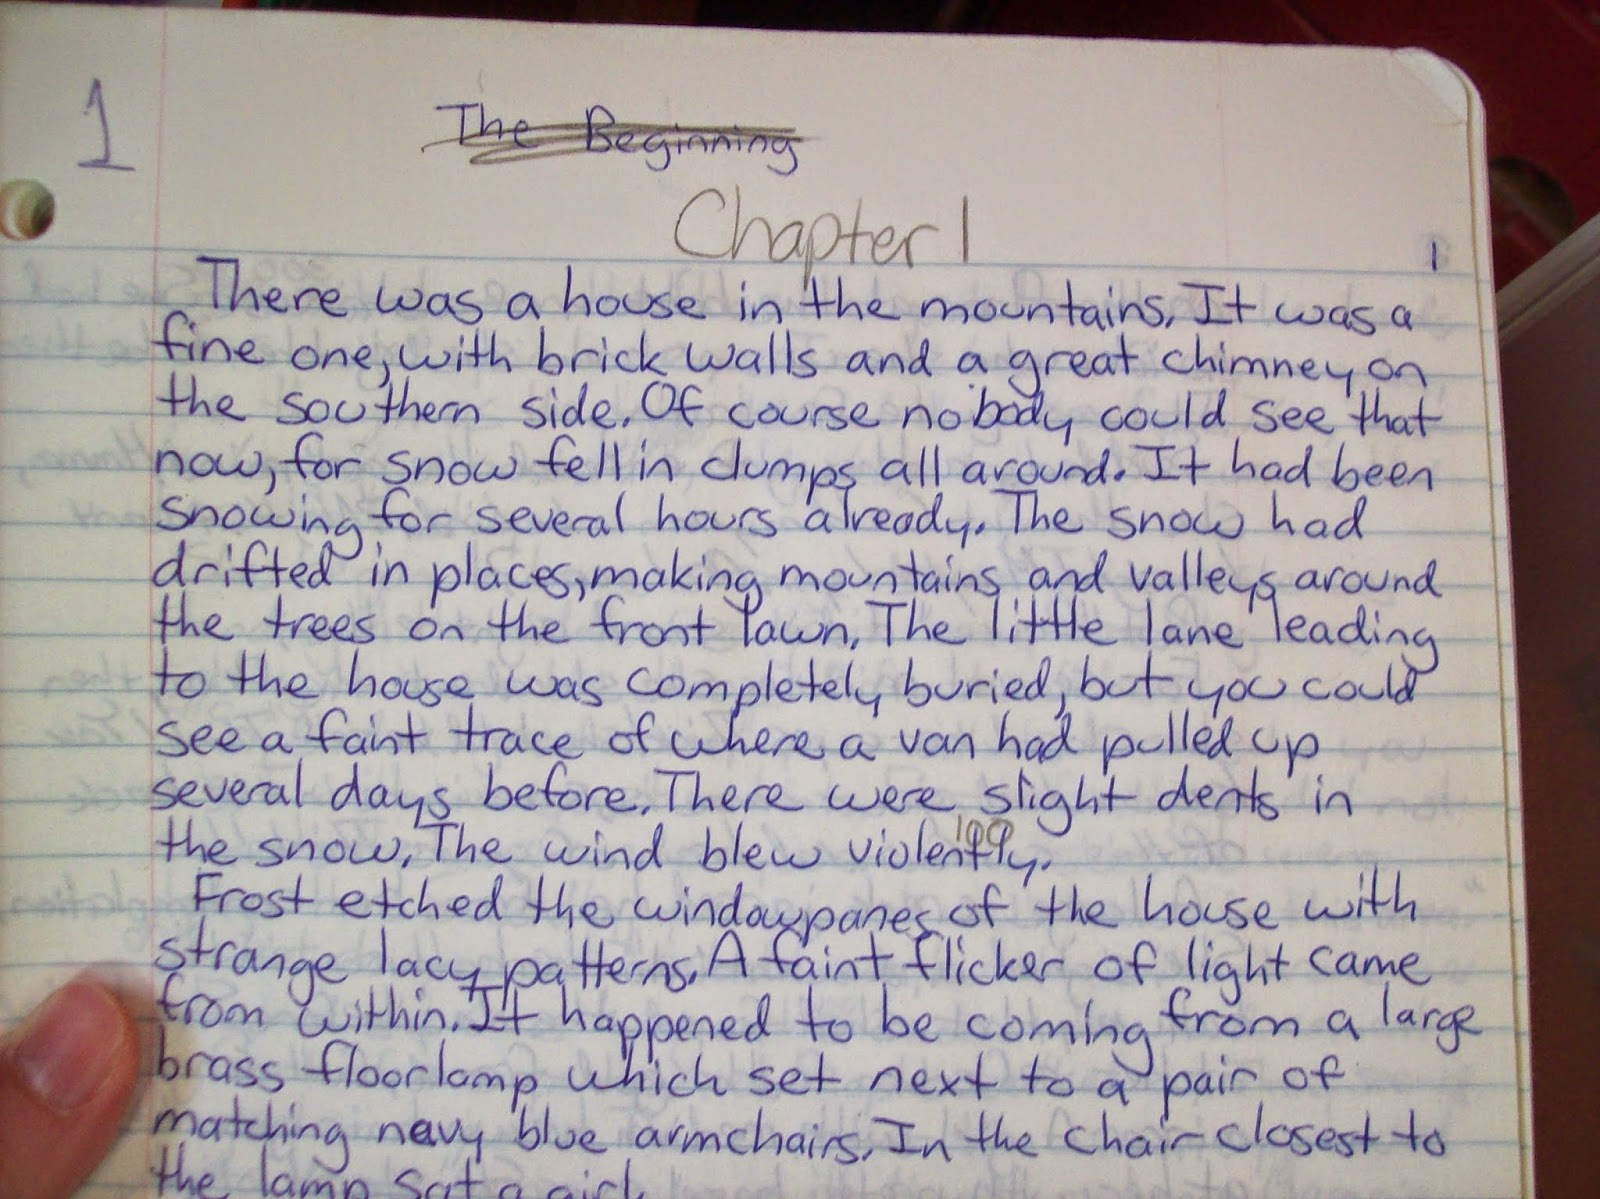 1
The Beginning
Chapter 1
1
There was a house in the mountains. It was a
fine one, with brick walls and a great chimney on
the southern side. Of course nobody could see that
now, for snow fell in clumps all around. It had been
snowing for several hours already. The snow had
drifted in places, making mountains and valleys around
the trees on the front lawn. The little lane leading
to the house was completely buried, but you could
see a faint trace of where a van had pulled up
several days before. There were slight dents in
the snow. The wind blew violently.
100
Frost etched the windowpanes of the house with
strange lacy patterns. A faint flicker of light came
from within. It happened to be coming from a large
brass floorlamp which set next to a pair of
matching navy blue armchairs. In the chair closest to
the lamp sat a girl